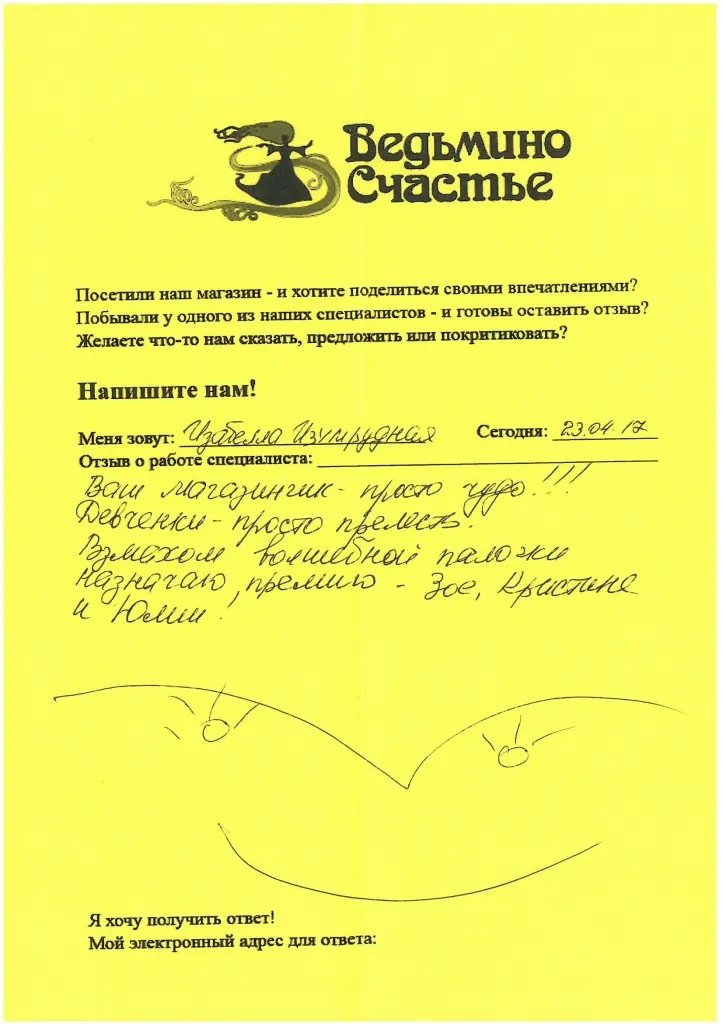 Ведьмино
Счастье
Посетили наш магазин - и хотите поделиться своими впечатлениями?
Побывали у одного из наших специалистов - и готовы оставить отзыв?
Желаете что-то нам сказать, предложить или покритиковать?
Напишите нам!
Меня зовут: Изабелла Изумрудная Сегодня: 23.04.17
Отзыв о работе специалиста:
Ваш магазинчик - просто чудо!!!
Девченки - просто прелесть!
Взмахом волшебной палочки
назначаю премию - Зое, Кристине
и Юлии!
Я хочу получить ответ!
Мой электронный адрес для ответа: